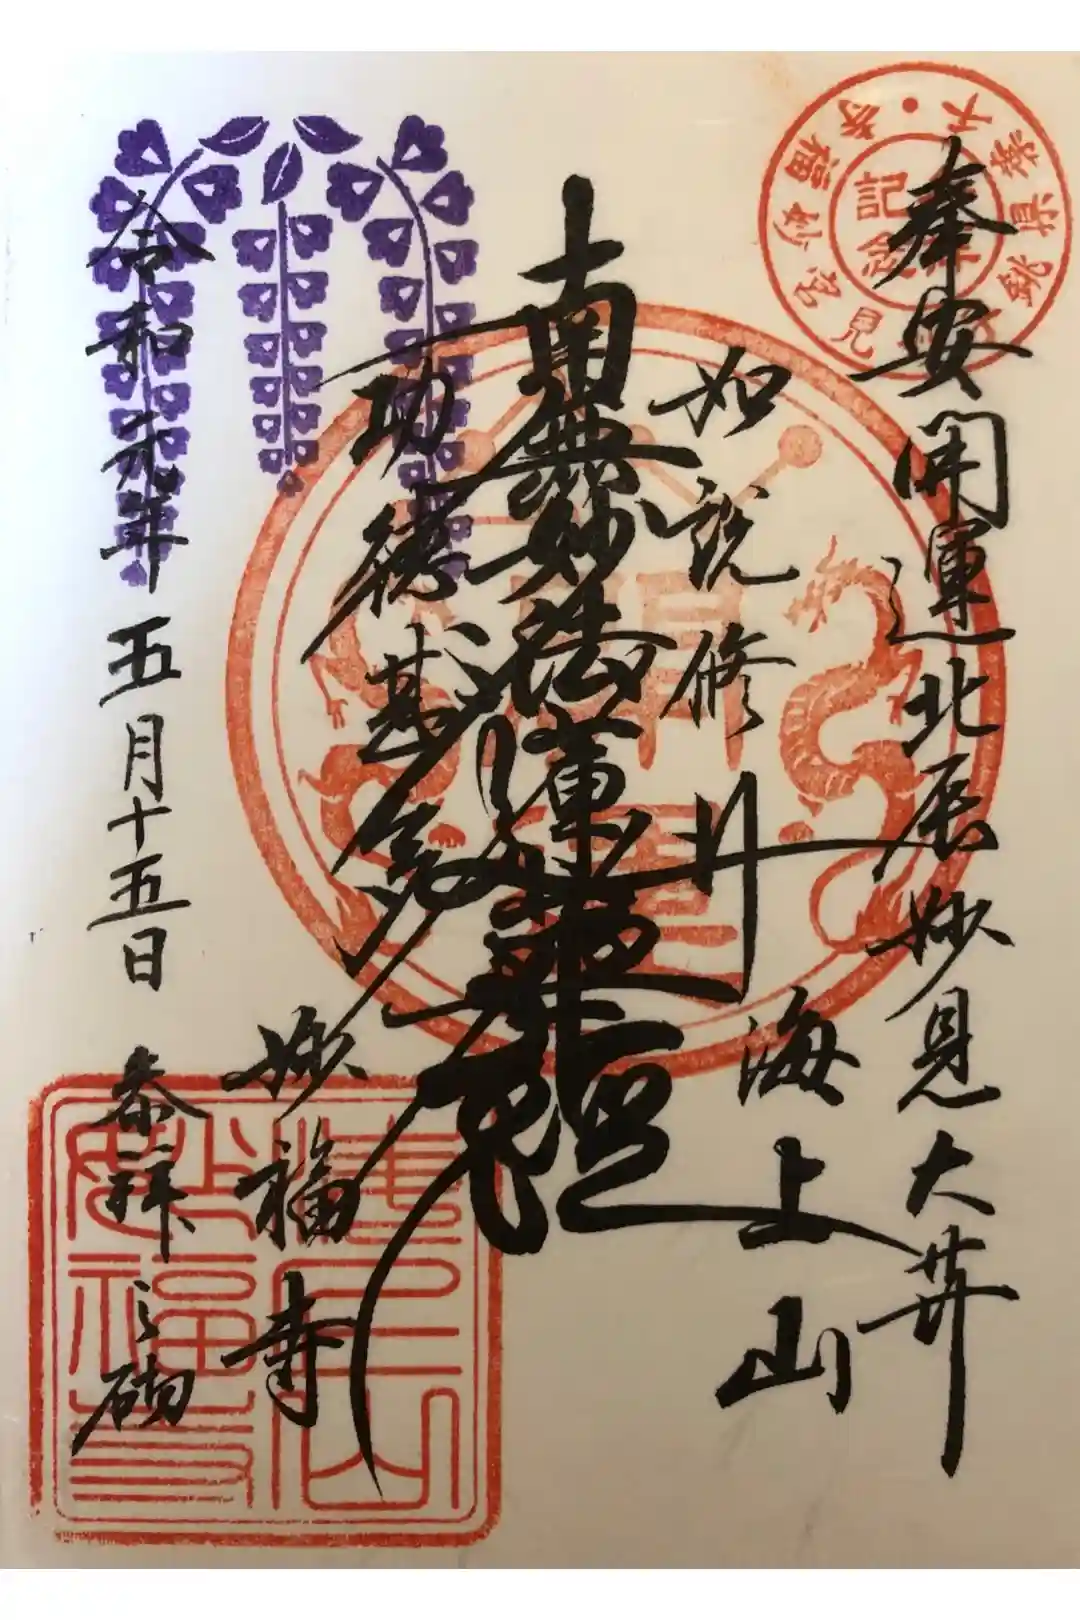 奉安開運北辰妙見大𦬇
如説修行
海上山
南無妙法蓮華經
功德甚多
妙福寺
令和元年五月十五日 参拝之砌
記念
海上山
妙福寺